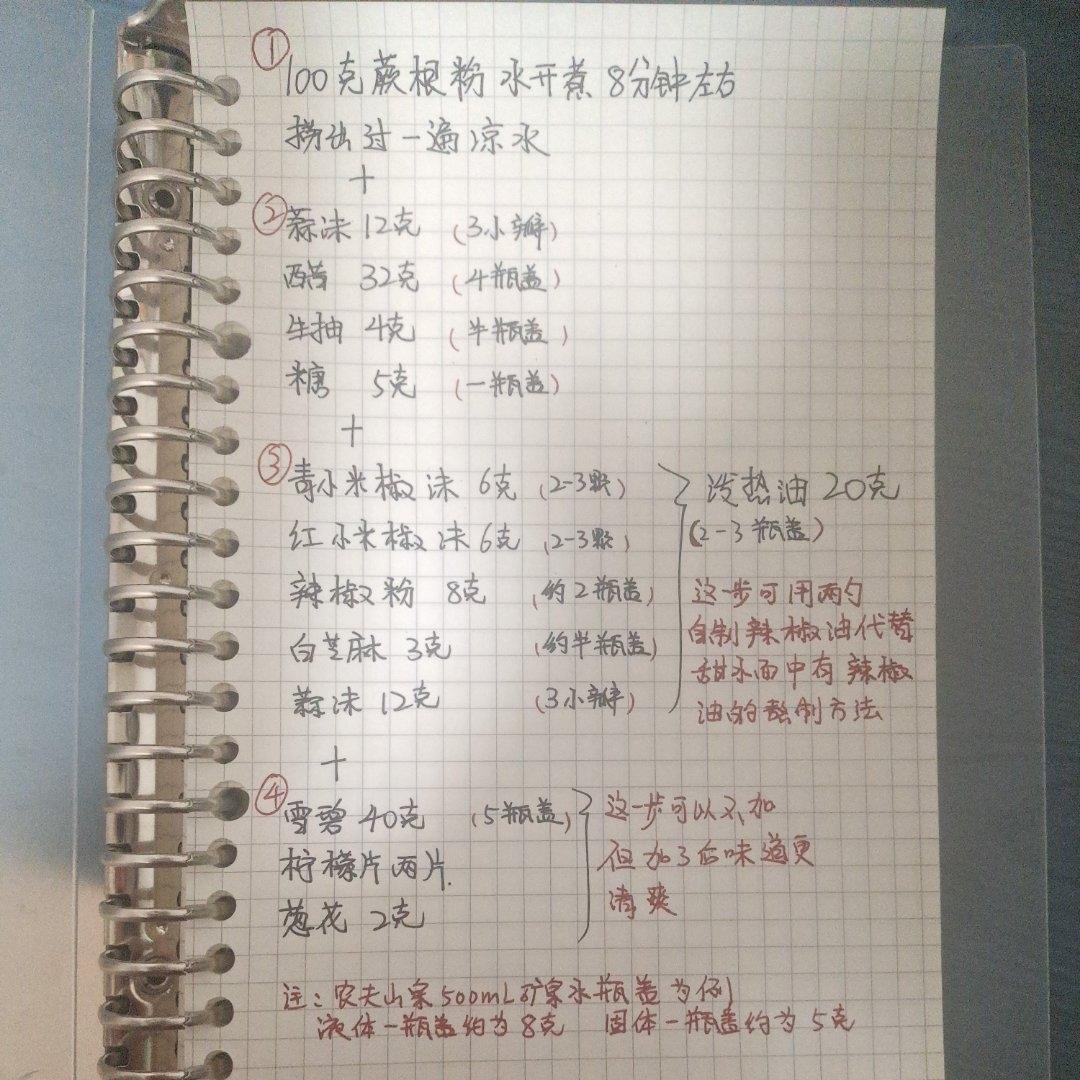 ① 100克蕨根粉 水开煮8分钟左右
捞出过一遍凉水
+
② 蒜沫 12克 (3小瓣)
西醋 32克 (4瓶盖)
生抽 4克 (半瓶盖)
糖 5克 (一瓶盖)
+
③ 青小米椒沫 6克 (2-3颗)
红小米椒沫 6克 (2-3颗)
辣椒粉 8克 (约2瓶盖)
白芝麻 3克 (约半瓶盖)
蒜沫 12克 (3小瓣)
浇热油 20克
(2-3瓶盖)
这一步可用两勺
自制辣椒油代替
甜水面中有辣椒
油的熬制方法
+
④ 雪碧 40克 (5瓶盖)
柠檬片两片.
葱花 2克
这一步可以不加
但加了后味道更
清爽
注:农夫山泉500mL矿泉水瓶盖为例
液体一瓶盖约为8克 固体一瓶盖约为5克